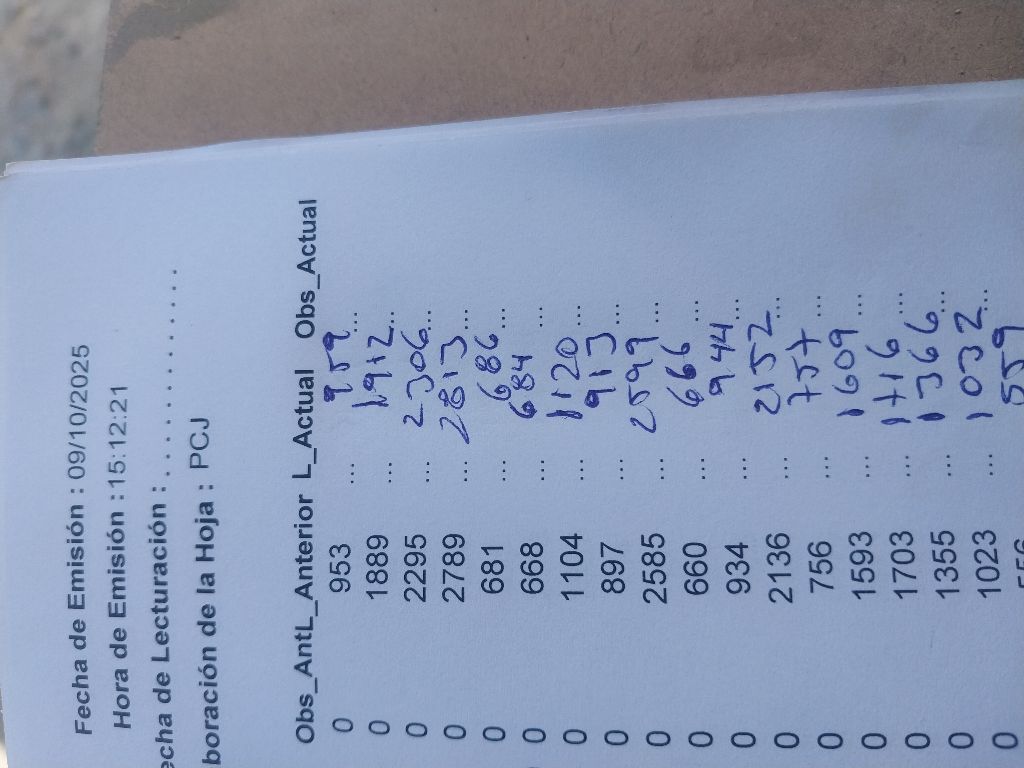 Fecha de Emisión : 09/10/2025
Hora de Emisión : 15:12:21
echa de Lecturación : . . . . . . . . . . . . . . .
boración de la Hoja : PCJ
Obs_AntL_Anterior L_Actual Obs_Actual
0 953 ... 959 ...
0 1889 ... 1912 ...
0 2295 ... 2306 ...
0 2789 ... 2813 ...
0 681 ... 686 ...
0 668 ... 684 ...
0 1104 ... 1120 ...
0 897 ... 913 ...
0 2585 ... 2599 ...
0 660 ... 666 ...
0 934 ... 944 ...
0 2136 ... 2152 ...
0 756 ... 757 ...
0 1593 ... 1609 ...
0 1703 ... 1716 ...
0 1355 ... 1366 ...
0 1023 ... 1032 ...
0 556 559